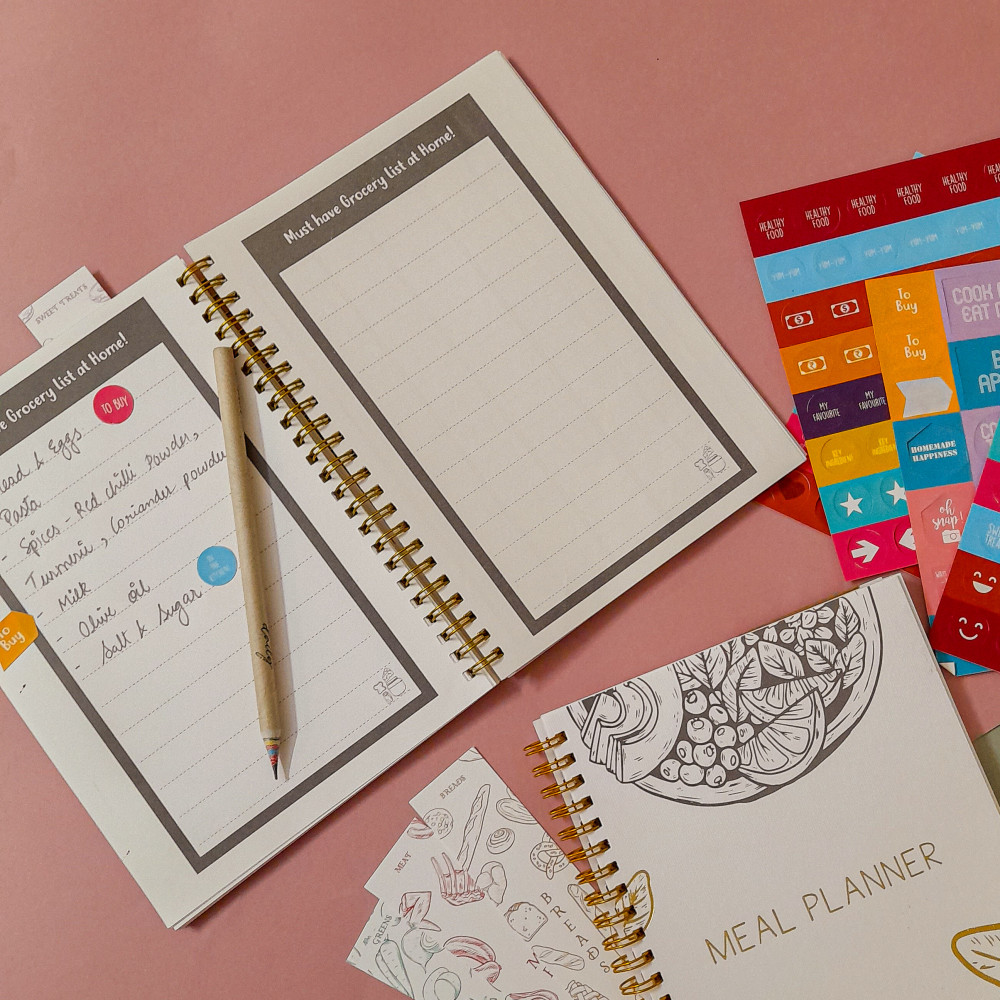 SWEET TREATS
Grocery list at Home!
TO BUY
& Eggs
Pasta
- Spices - Red chilli Powder,
Turmeric, Coriander powder
- Milk
- Olive oil
- Salt & Sugar
To
Buy
Must have Grocery list at Home!
HEALTHY FOOD HEALTHY FOOD HEALTHY FOOD HEALTHY FOOD HEALTHY FOOD
YUM-YUM YUM-YUM YUM-YUM YUM-YUM YUM-YUM
To
Buy
To
Buy
COOK
EAT
MY FAVOURITE MY FAVOURITE
HOMEMADE
HAPPINESS
oh
snap!
BREADS
MEAT
GREENS
BREADS
MEAL PLANNER